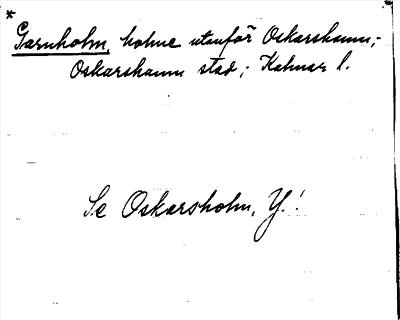 * Garnholm, holme utanför Oskarshamn;
Oskarshamn stad; Kalmar l.
Se Oskarsholm, Y.!